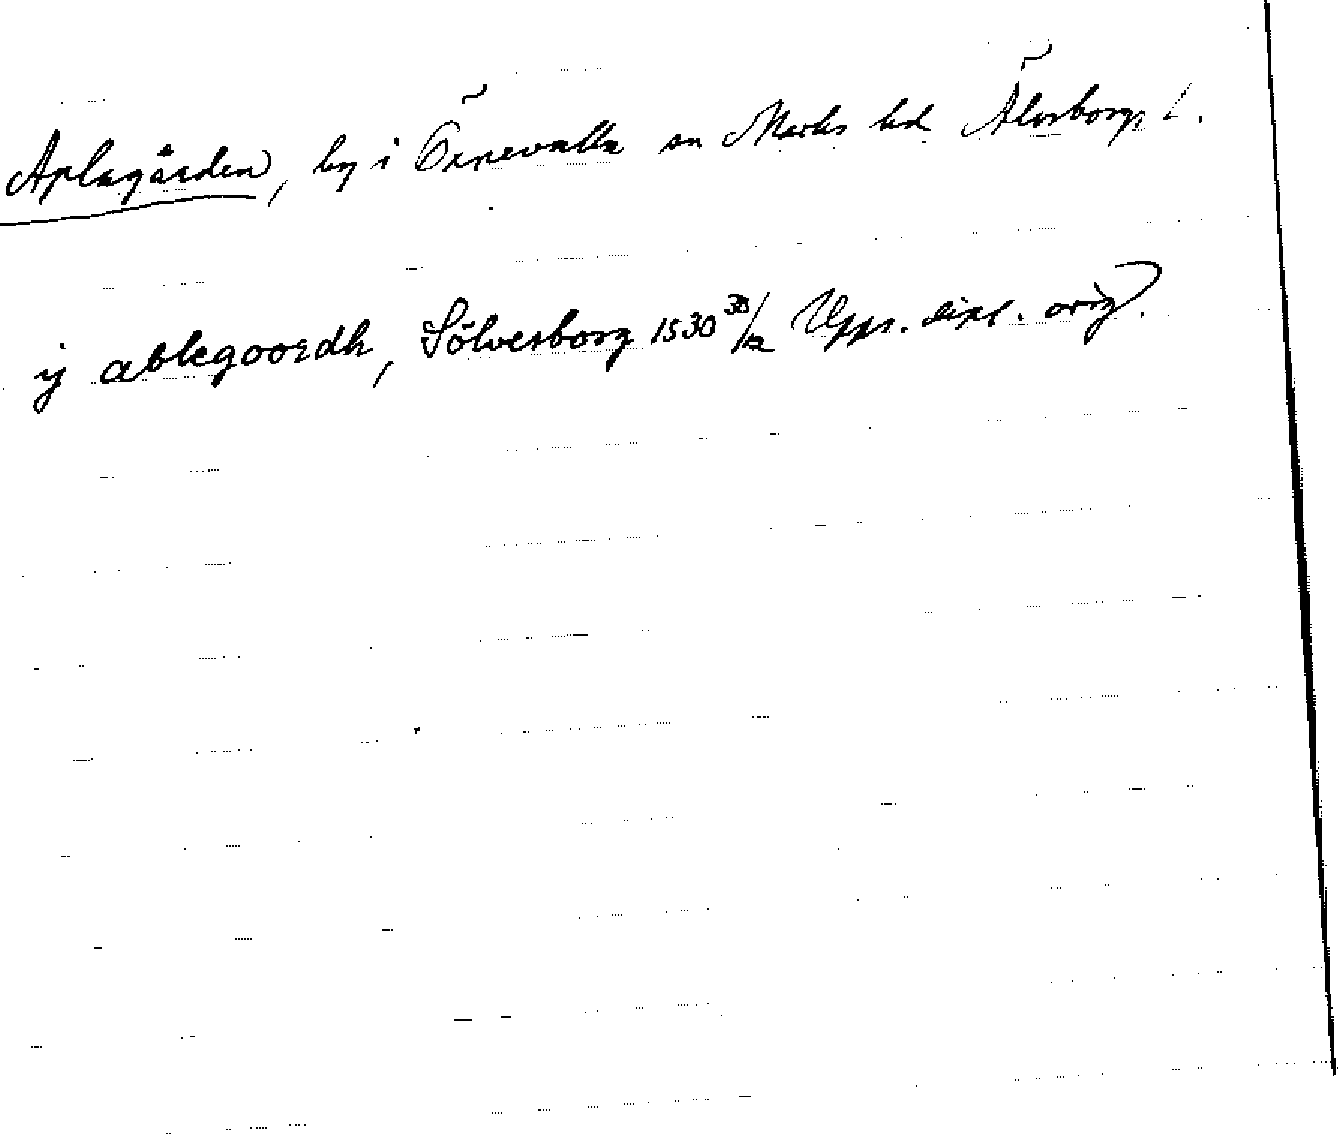 Aplagården, by i Örnevalla sn Marks hd Älvsborgs l.
ij ablegoordh, Sölvesborg 1530 30/12 Upps. dipl. orig.